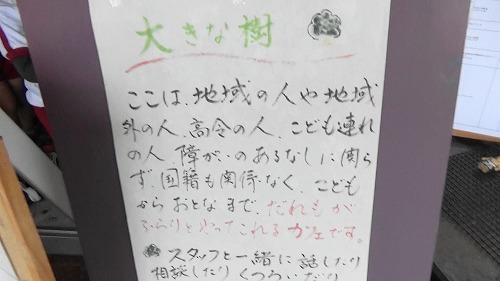 大きな樹
ここは、地域の人や地域
外の人、高令の人、こども連れ
の人、障がいのあるなしに関ら
ず、国籍も関係なく、こども
からおとなまで、だれもが
ぶらりとやってこれるカフェです。
スタッフと一緒に話したり
相談したりくつろいだり